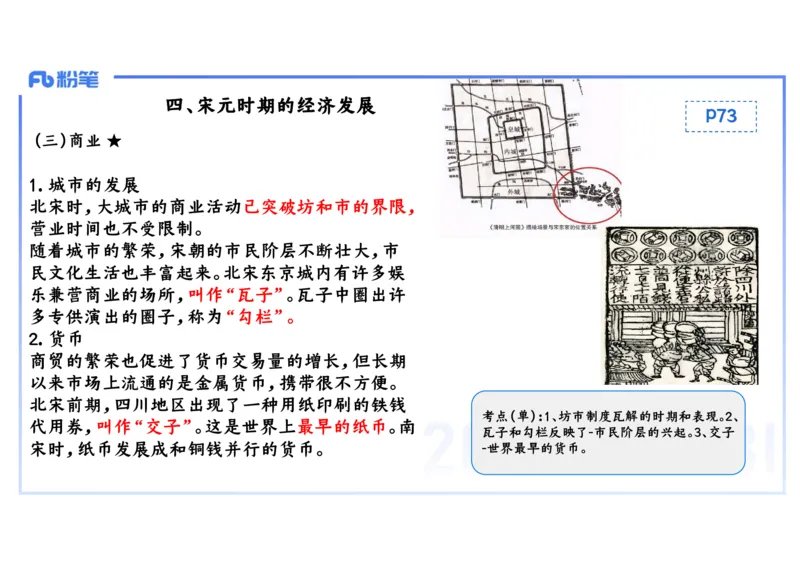 粉笔
四、宋元时期的经济发展
P73
(三)商业 ★
1.城市的发展
北宋时,大城市的商业活动已突破坊和市的界限,
营业时间也不受限制。
随着城市的繁荣,宋朝的市民阶层不断壮大,市
民文化生活也丰富起来。北宋东京城内有许多娱
乐兼营商业的场所,叫作“瓦子”。瓦子中圈出许
多专供演出的圈子,称为“勾栏”。
2.货币
商贸的繁荣也促进了货币交易量的增长,但长期
以来市场上流通的是金属货币,携带很不方便。
北宋前期,四川地区出现了一种用纸印刷的铁钱
代用券,叫作“交子”。这是世界上最早的纸币。南
宋时,纸币发展成和铜钱并行的货币。
皇城
内城
外城
《清明上河图》描绘场景与宋东京的位置关系
除四川外
许于诸路
州县公私
从便主管
并同见钱
七百七十
流转行使
考点(单):1、坊市制度瓦解的时期和表现。2、
瓦子和勾栏反映了-市民阶层的兴起。3、交子
-世界最早的货币。